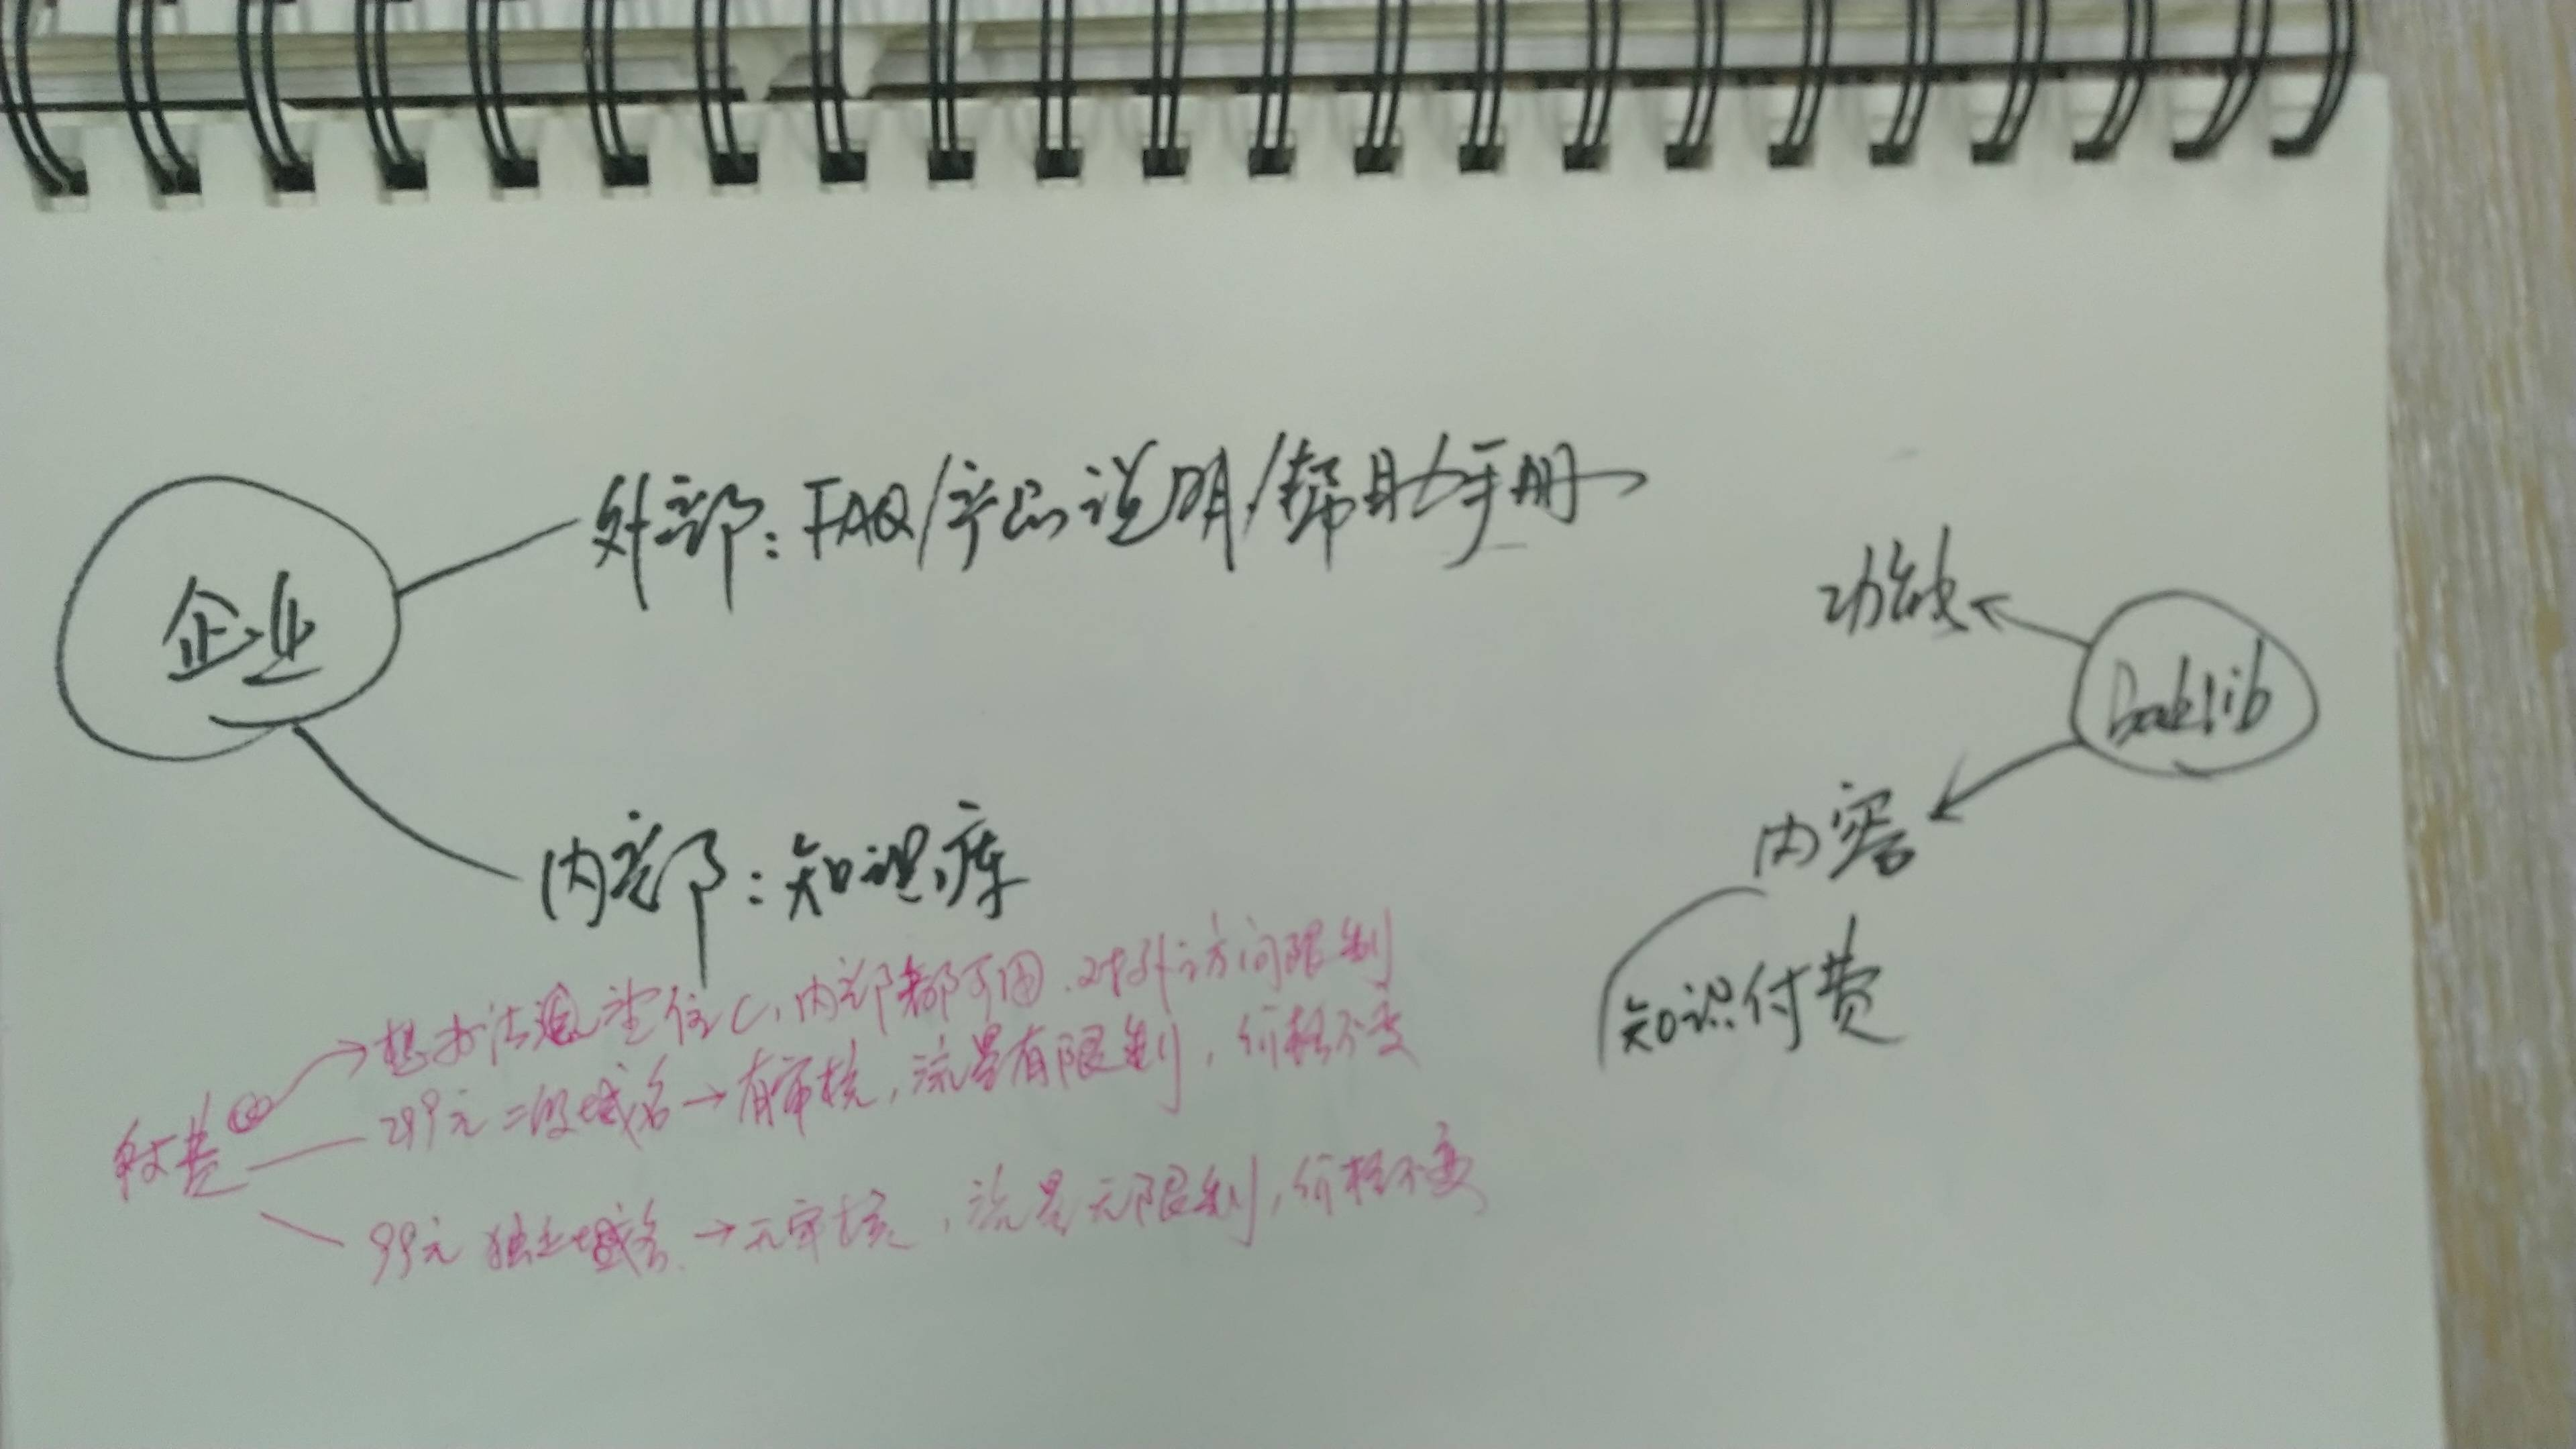 外部：FAQ/产品说明/帮助手册
企业
功能
Baklib
内部：知识库
内容
知识付费
想办法 C，内部都可用，对外访问限制
付费
299元 二级域名→有审核，流量有限制，价格不变
99元 独立域名→无审核，流量无限制，价格不变